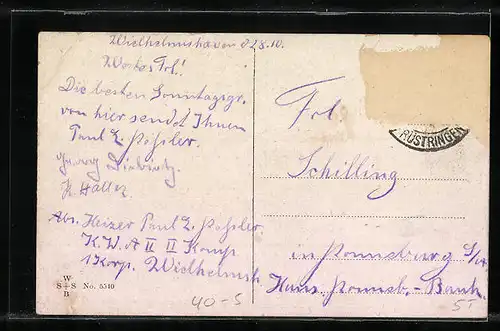 Wielhelmshaven d 28.10.
Wertes Frl!
Die besten Sonntagsgr.
von hier sendet Ihnen
Paul L. Pößler.
H. Haller
Abs. Heizer Paul L. Pößler
K. W. A II II Komp
1 Korp. Wielhelmsh.
W
S+S No. 5540
B
Frl
RÜSTRINGEN
Schilling
in Ronneburg S/A
Haus Ronneb. - Bank
40-5
5T